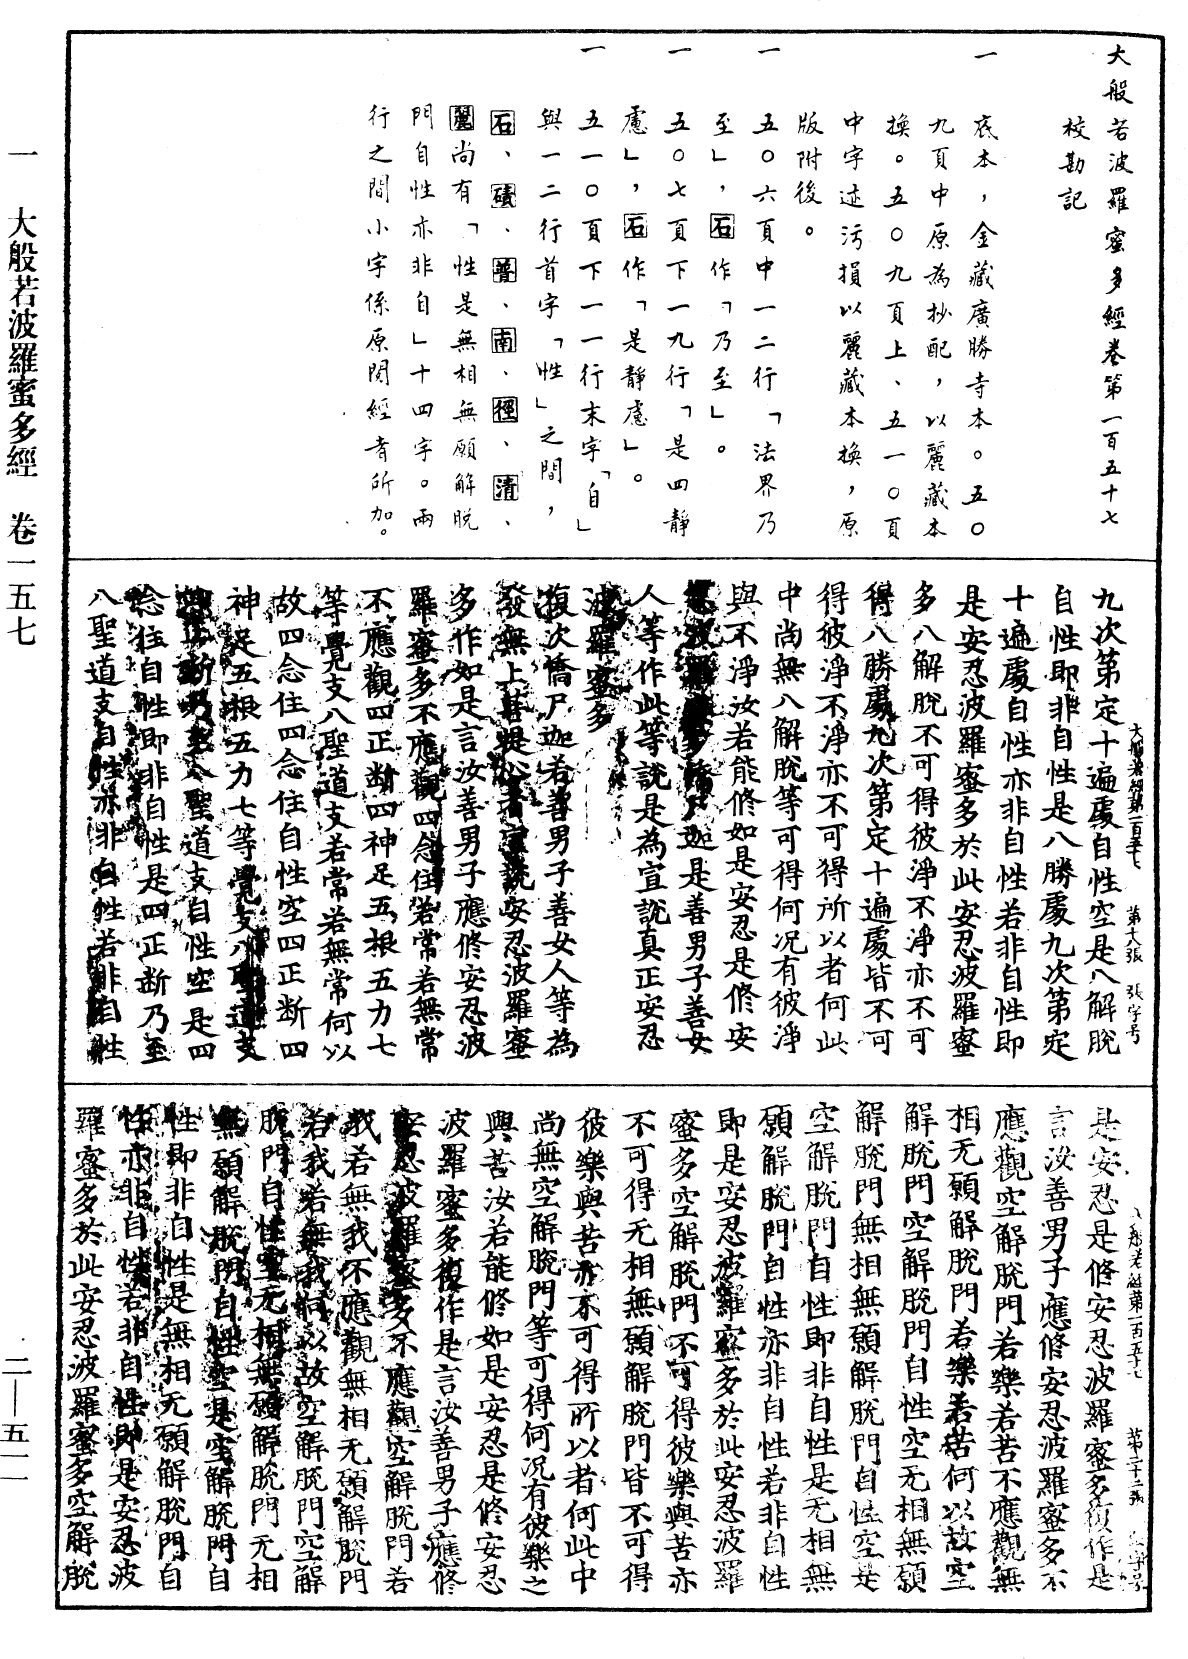 大般若波羅蜜多經卷第一百五十七
校勘記
一 底本，金藏廣勝寺本。五〇
九頁中原為抄配，以麗藏本
換。五〇九頁上、五一〇頁
中字迹污損以麗藏本換，原
版附後。
一 五〇六頁中一二行「法界乃
至」，石作「乃至」。
一 五〇七頁下一九行「是四靜
慮」，石作「是靜慮」。
一 五一〇頁下一一行末字「自」
與一二行首字「性」之間，
石、磧、普、南、徑、清、
麗尚有「性是無相無願解脫
門自性亦非自」十四字。兩
行之間小字係原閱經者所加。
九次第定十遍處自性空是八解脫
自性即非自性是八勝處九次第定
十遍處自性亦非自性若非自性即
是安忍波羅蜜多於此安忍波羅蜜
多八解脫不可得彼淨不淨亦不可
得八勝處九次第定十遍處皆不可
得彼淨不淨亦不可得所以者何此
中尚無八解脫等可得何況有彼淨
與不淨汝若能修如是安忍是修安
忍波羅蜜多憍尸迦是善男子善女
人等作此等說是為宣說真正安忍
波羅蜜多
復次憍尸迦若善男子善女人等為
發無上菩提心者宣說安忍波羅蜜
多作如是言汝善男子應修安忍波
羅蜜多不應觀四念住若常若無常
不應觀四正斷四神足五根五力七
等覺支八聖道支若常若無常何以
故四念住四念住自性空四正斷四
神足五根五力七等覺支八聖道支
四正斷乃至八聖道支自性空是四
念住自性即非自性是四正斷乃至
八聖道支自性亦非自性若非自性
大般若經第一百五十七 第十八張 張字号
是安忍是修安忍波羅蜜多復作是
言汝善男子應修安忍波羅蜜多不
應觀空解脫門若樂若苦不應觀無
相无願解脫門若樂若苦何以故空
解脫門空解脫門自性空无相無願
解脫門無相無願解脫門自性空是
空解脫門自性即非自性是无相無
願解脫門自性亦非自性若非自性
即是安忍波羅蜜多於此安忍波羅
蜜多空解脫門不可得彼樂與苦亦
不可得无相無願解脫門皆不可得
彼樂與苦亦不可得所以者何此中
尚無空解脫門等可得何況有彼樂之
與苦汝若能修如是安忍是修安忍
波羅蜜多復作是言汝善男子應修
安忍波羅蜜多不應觀空解脫門若
我若無我不應觀無相无願解脫門
若我若無我何以故空解脫門空解
脫門自性空无相無願解脫門无相
無願解脫門自性空是空解脫門自
性即非自性是無相无願解脫門自
性亦非自性若非自性即是安忍波
羅蜜多於此安忍波羅蜜多空解脫
般若經第一百五十七
一 大般若波羅蜜多經 卷一五七
二—五一一